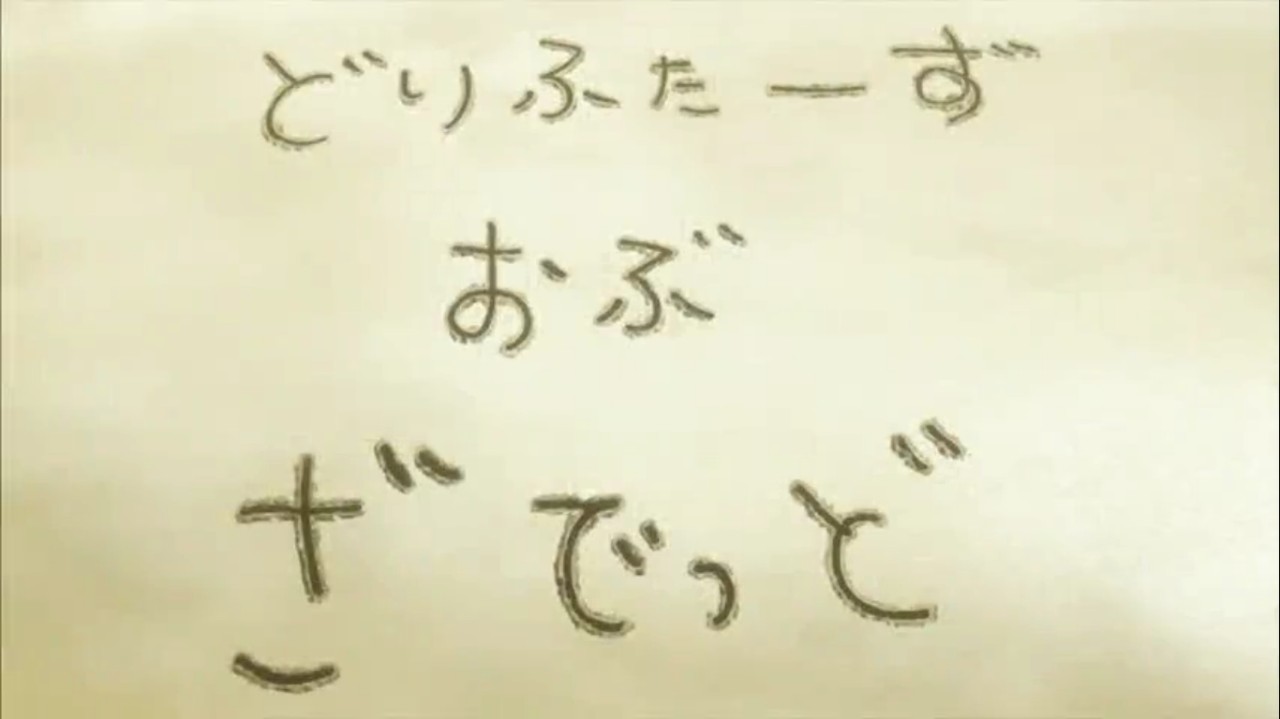 どりふたーず
おぶ
ざでっど